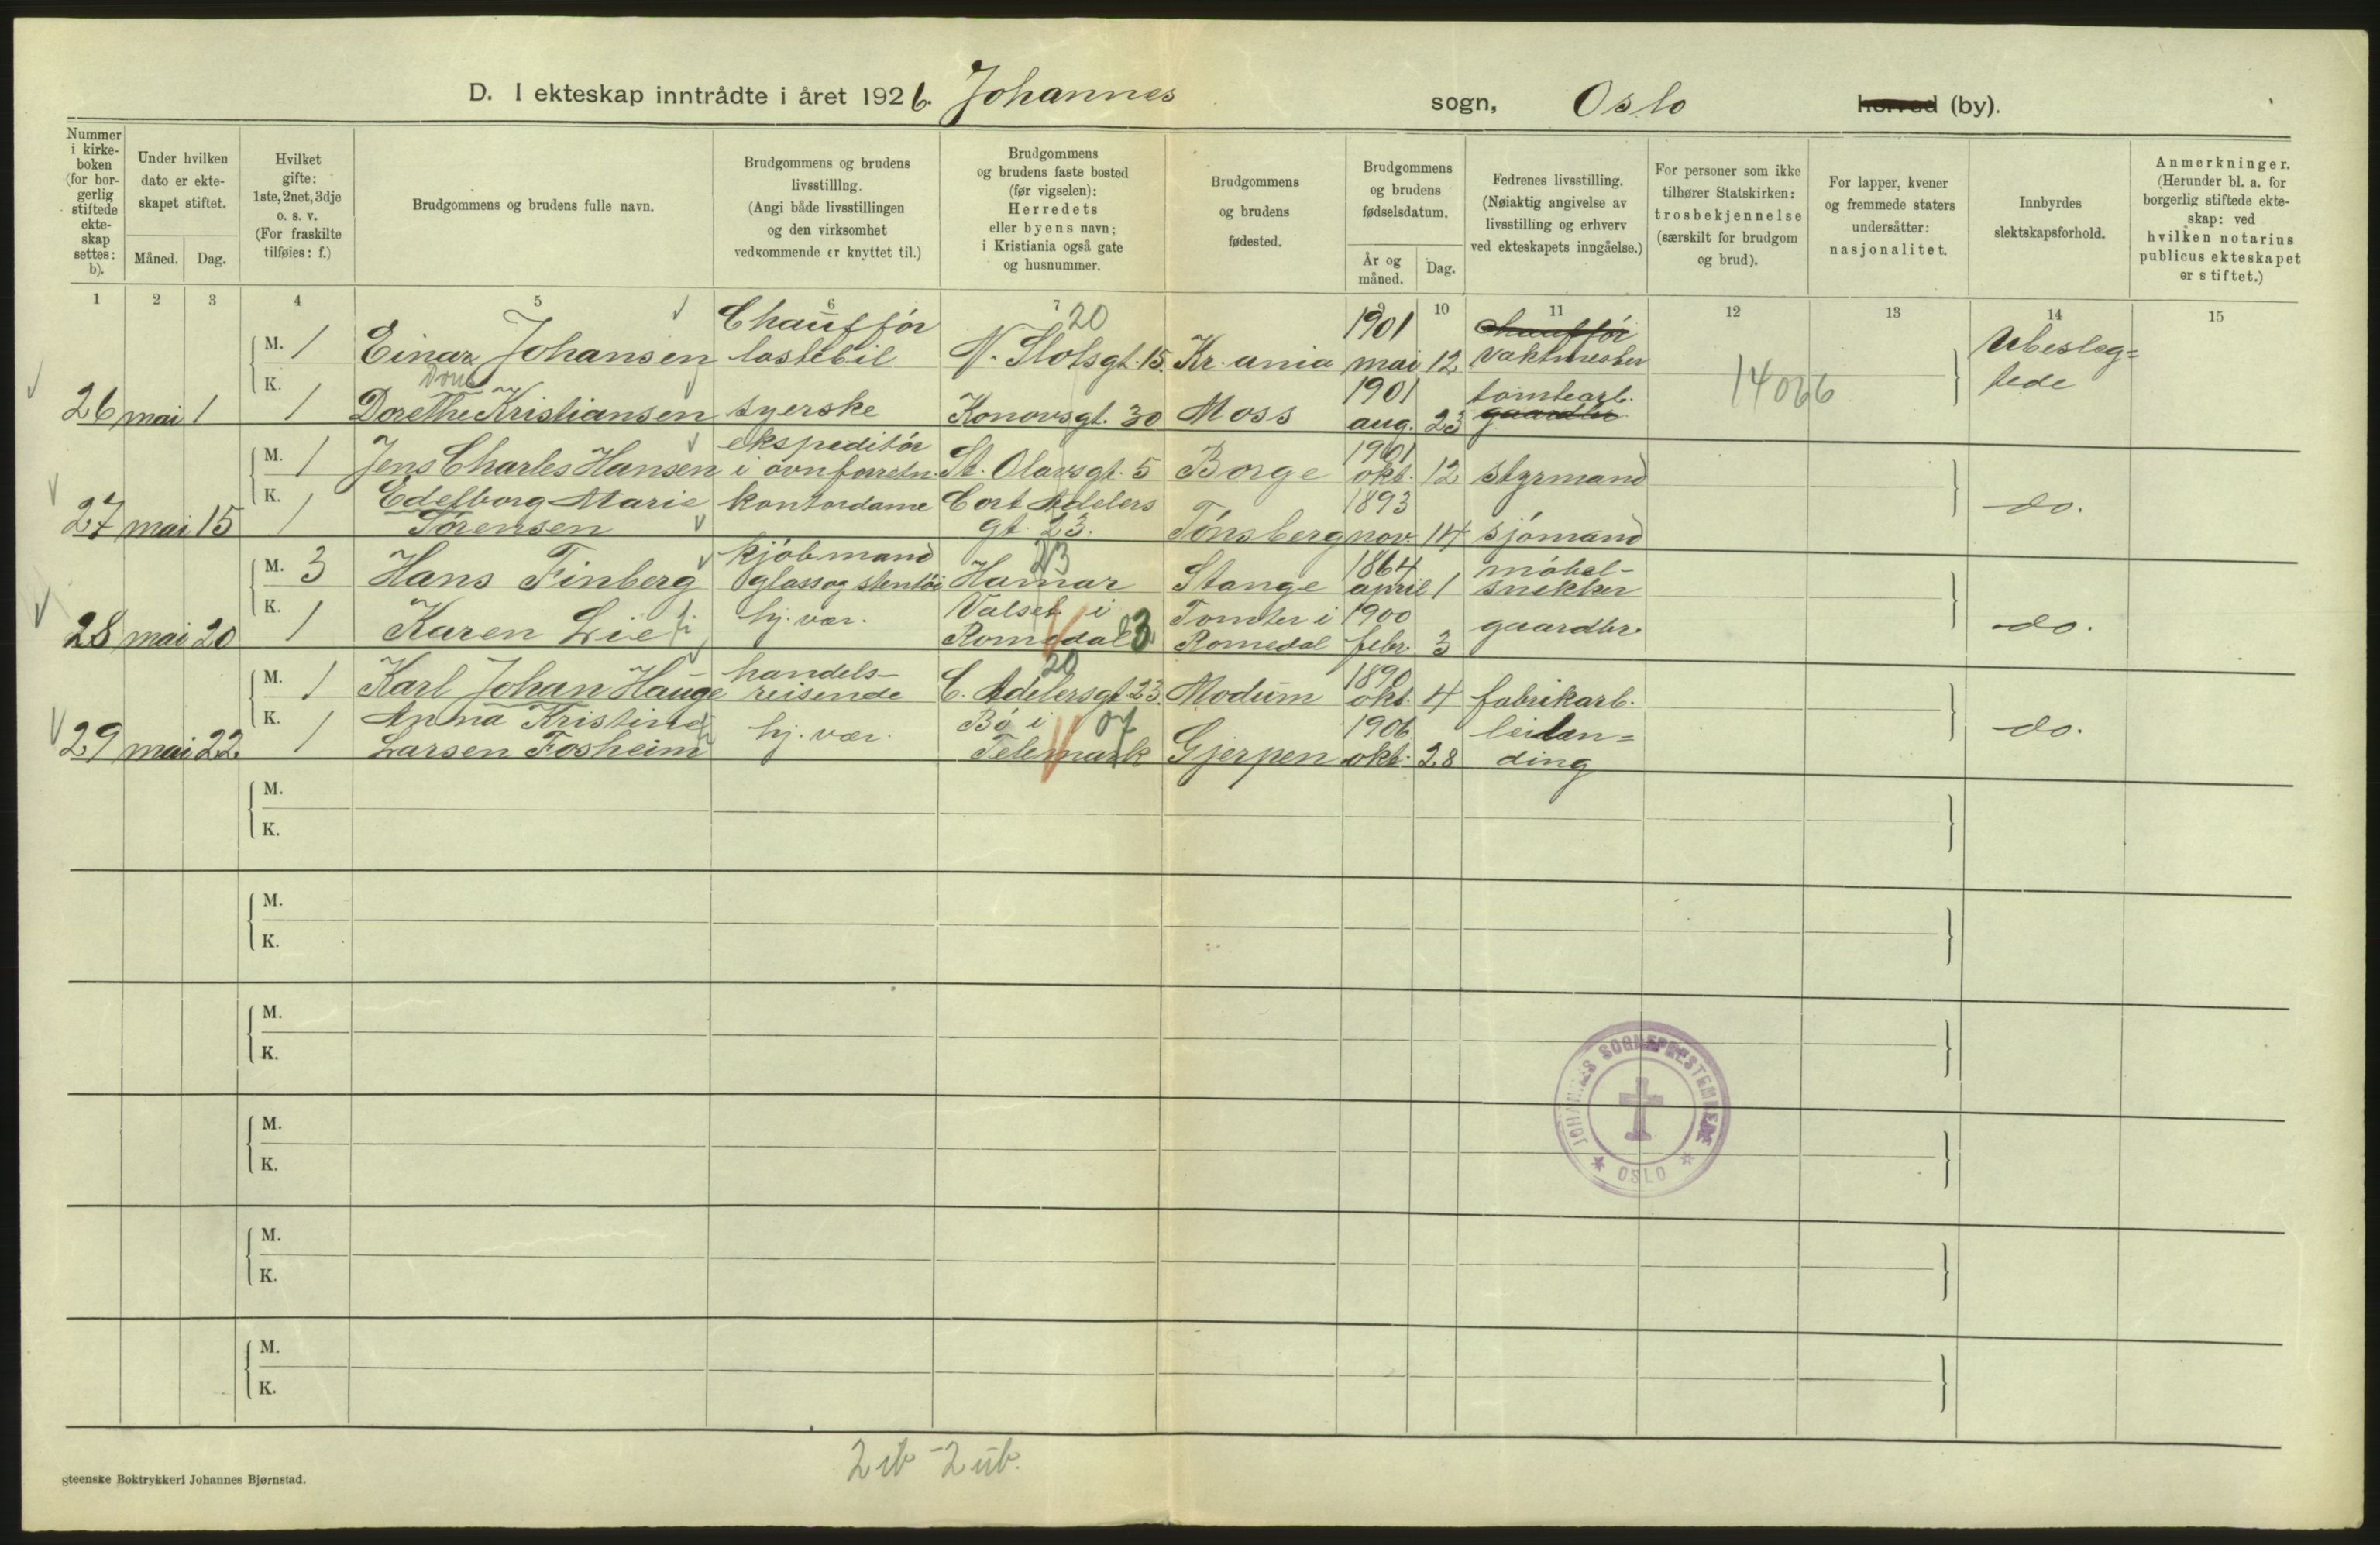 D. I ekteskap inntrådte i året 1926. Johannes sogn, Oslo herred (by).
Nummer i kirke- boken (for bor- gerlig stiftede ekte- skap settes: b).
Under hvilken dato er ekte- skapet stiftet.
Måned. Dag.
Hvilket gifte: 1ste, 2net, 3dje o. s. v. (For fraskilte tilføies: f.)
Brudgommens og brudens fulle navn.
Brudgommens og brudens livsstilling. (Angi både livsstillingen og den virksomhet vedkommende er knyttet til.)
Brudgommens og brudens faste bosted (før vigselen): Herredets eller byens navn; i Kristiania også gate og husnummer.
Brudgommens og brudens fødested.
Brudgommens og brudens fødselsdatum.
År og måned. Dag.
Fedrenes livsstilling. (Nøiaktig angivelse av livsstilling og erhverv ved ekteskapets inngåelse.)
For personer som ikke tilhører Statskirken: trosbekjennelse (særskilt for brudgom og brud).
For lapper, kvener og fremmede staters undersåtter: nasjonalitet.
Innbyrdes slektskapsforhold.
Anmerkninger. (Herunder bl. a. for borgerlig stiftede ekte- skap: ved hvilken notarius publicus ekteskapet er stiftet.)
1 2 3 4 5 6 7 9 10 11 12 13 14 15
Chauffør 20 1901 chauffør Ubesleg=
M. 1 Einar Johansen lastebil N. Slotsgt. 15. Kr.ania mai 12 vaktmester tede
K. 1901 tomtearb. 14066
26 mai 1 1 Dorethe Kristiansen syerske Konowsgt. 30 Moss aug. 23 gaardbr.
ekspeditør 1901
M. 1 Jens Charles Hansen i ovnforretn. St. Olavsgt. 5 Borge okt. 12 styrmand
K. 1 Edelborg Marie kontordame Cort Adelers 1893 do.
27 mai 15 Sørensen gt. 23. Tønsberg nov. 14 sjømand
kjøbmand 1864 møbel-
M. 3 Hans Finberg glass og stentøi Hamar Stange april 1 snekker
K. 1 Karen Lie hj. vær. Valset i Tomter i 1900 gaardbr. do.
28 mai 20 Romedal 3 Romedal febr. 3
handels- 20 1890
M. 1 Karl Johan Hauge reisende C. Adelersgt. 23. Modum okt. 4 fabrikarb.
K. 1 Anna Kristine hj. vær. Bø i 07 1906 leilen= do.
29 mai 22 Larsen Fosheim Telemark Gjerpen okt. 28 ding
M.
K.
M.
K.
M.
K.
M.
K.
M.
K.
M.
K.
JOHANNES SOGNEPRESTEMBEDE
OSLO
2 ib - 2 üb.
gteenske Boktrykkeri Johannes Bjørnstad.